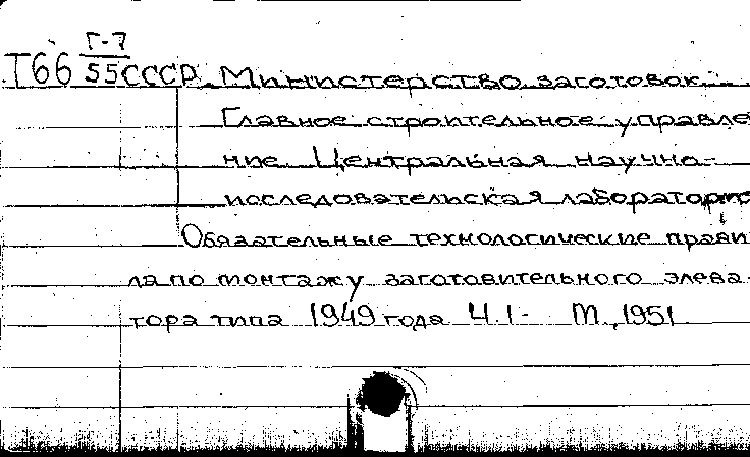 Г-7
Т66 55 СССР. Министерство заготовок.
Главное строительное управле
ние. Центральная научно-
исследовательская лаборатория
Обязательные технологические прави
ла по монтажу заготовительного элева-
тора типа 1949 года Ч.I- М., 1951